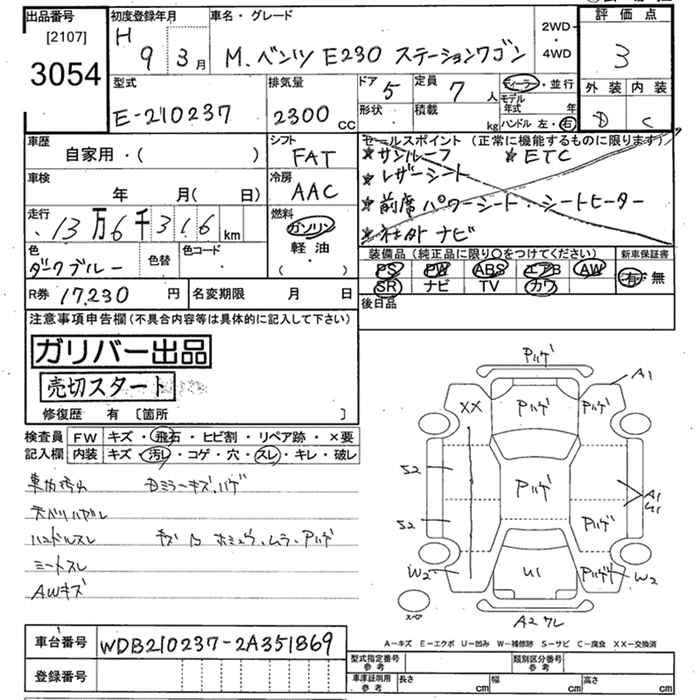 出品番号
[2107]
3054
初度登録年月
H 9 3月
車名・グレード
M.ベンツ E230 ステーションワゴン
2WD
・
4WD
評価点
3
型式
E-210237
排気量
2300 cc
ドア 5
定員 7 人
形状
積載 kg
ディーラー・並行
モデル年式 年
ハンドル 左・右
外装 内装
D C
車歴
自家用・( )
シフト
FAT
セールスポイント (正常に機能するものに限ります)
*サンルーフ *ETC
*レザーシート
*前席パワーシート・シートヒーター
*社外ナビ
車検
年 月( 日)
冷房
AAC
走行
13万6千316km
燃料
ガソリン
軽油
( )
色
ダークブルー
色替
色コード
装備品 (純正品に限り○をつけてください)
新車保証書
PS PW ABS エアB AW
有・無
SR ナビ TV カワ
R券 17,230 円
名変期限 月 日
後日品
注意事項申告欄(不具合内容等は具体的に記入して下さい)
ガリバー出品
売切スタート
修復歴 有 〔箇所 〕
検査員 FW キズ・飛石・ヒビ割・リペア跡・×要
記入欄 内装 キズ・汚れ・コゲ・穴・スレ・キレ・破レ
ハンドルスレ
シートスレ
AWキズ
ハゲ
A1
XX
S2
S2
W2
U1
A1
U1
W2
スペア
A2
A－キズ E－エクボ U－凹み W－補修跡 S－サビ C－腐食 XX－交換済
車台番号 WDB210237-2A351869
登録番号
型式指定番号 参考
類別区分番号 参考
車庫証明用 参考
長さ cm 幅 cm 高さ cm